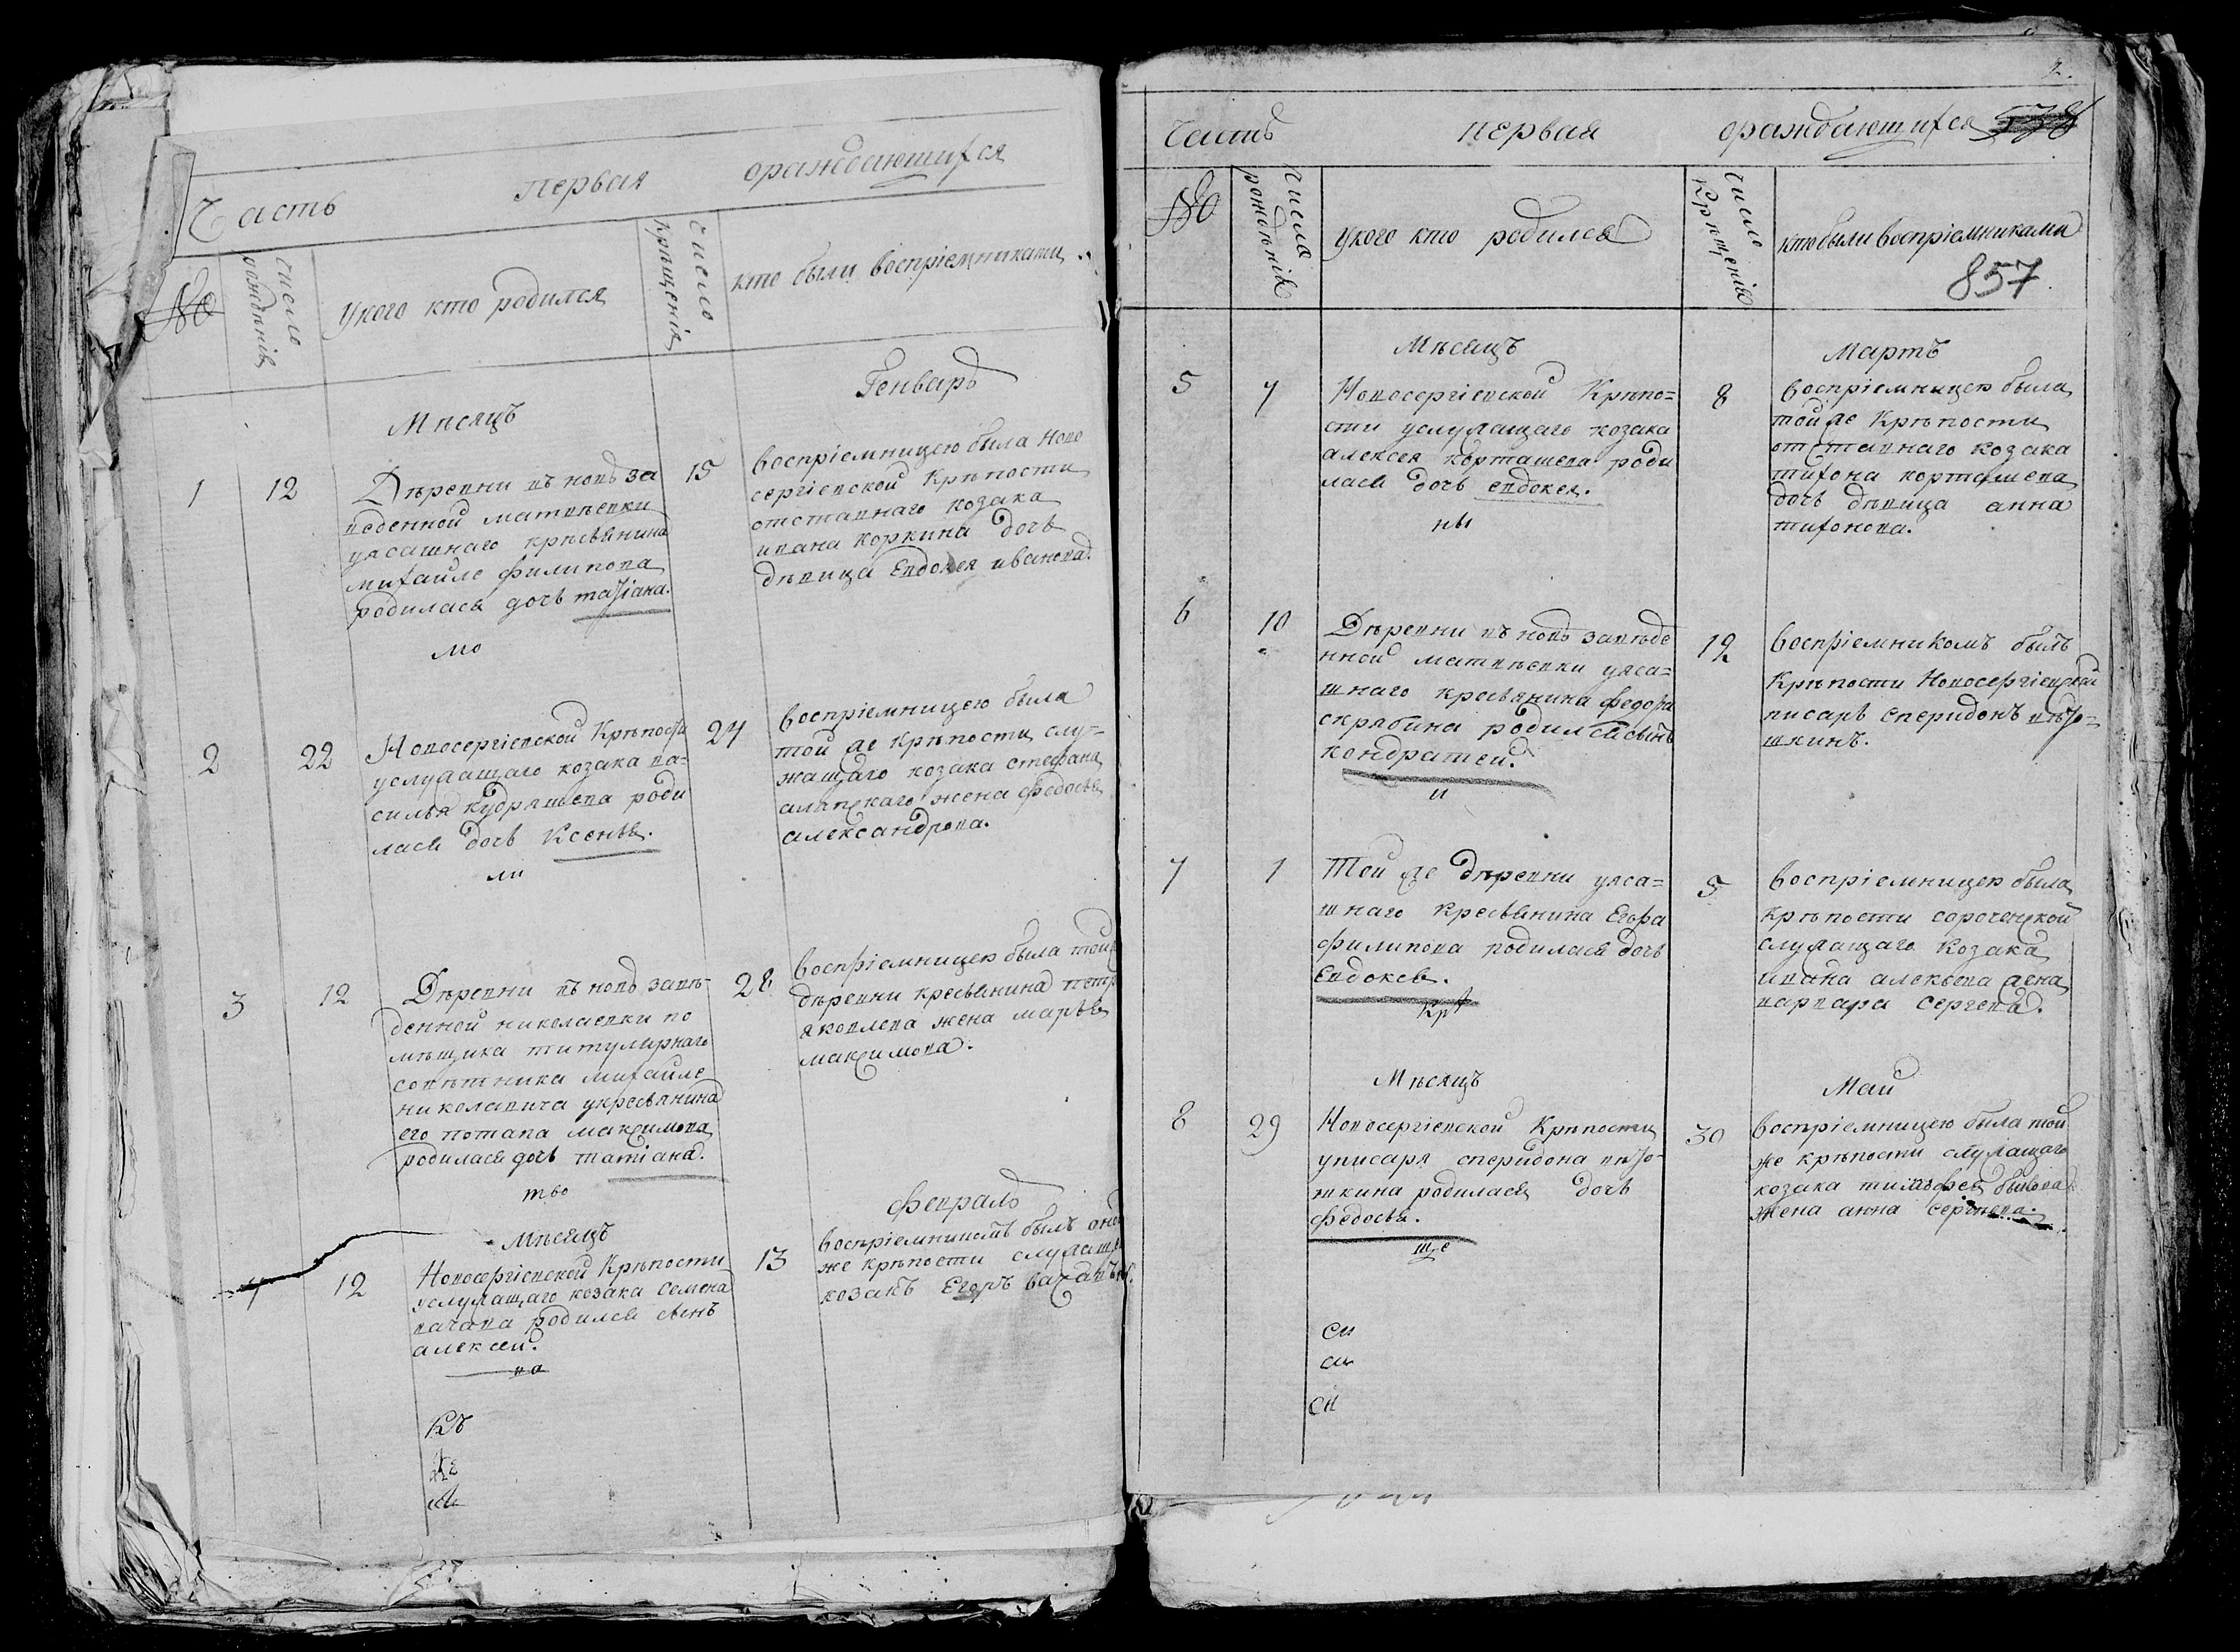 Часть первая ораждающихся
№
число рождениѣ
у кого кто родился
число крѣщениѣ
кто были воспріемниками
Мѣсяцъ
Генварь
1
12
Дѣревни въ новь за
веденной матвѣевки
уясашнаго крѣсьянина
михайле филипова
родилася дочь татіана.
мо
15
воспріемницею была ново
сергіевской Крѣпости
отставнаго козака
ивана коркина дочь
дѣвица Евдокея иванова.
2
22
Новосергіевской Крѣпости
услужащаго козака ва-
силья кудряшева роди
лася дочь Ксенья.
ли
24
воспріемницею была
той же крѣпости слу-
жащаго козака стефана
жена федосья
александрова.
3
12
Дѣревни въ новь завѣ-
денной николаевки по
мѣщика титулярнаго
советника михайле
николаевича укресьянина
его потапа максимова
родилася дочь татіана.
тво
28
воспріемницею была той
дѣревни кресьянина петр
яковлева жена марья
максимова.
Мѣсяцъ
Февраль
4
12
Новосергіевской Крѣпости
услужащаго козака Семена
вачава родился сынъ
алексеи.
ва
13
воспріемникомъ былъ оной
же крѣпости служаще
козакъ Егоръ
Къ
же
2.
Часть первая ораждающихся
№
числа рождѣнія
укого кто родился
число Крѣщенія
кто были воспріемниками
857
Мѣсяцъ
Мартъ
5
7
Новосергіевской Крѣпо=
сти услужащаго козака
алексея корташева роди
лася дочь евдокея.
ны
8
воспріемницею была
той же Крѣпости
отставнаго козака
тихона корташева
дочь дѣвица анна
тихонова.
6
10
Дѣревни въ новь завѣде
нной матвѣевки уяса=
шнаго кресьянина федора
скрябина родился сынъ
кондратеи.
и
12
воспріемникомъ былъ
Крѣпости Новосергіевской
писарь спиридонъ вѣто-
шкинъ.
7
1
Той же дѣревни уяса=
шнаго кресьянина Егора
филипова родилася дочь
Евдокея.
кр
5
воспріемницею была
крѣпости сороченской
служащаго козака
ивана алексѣева жена
варвара сергева.
Мѣсяцъ
Май
8
29
Новосергіевской Крѣпости
уписаря спиридона вѣто-
шкина родилася дочь
федосья.
ще
30
воспріемницею была той
же крѣпости служащаго
козака тимофея
жена анна сергѣева.
си
си
си